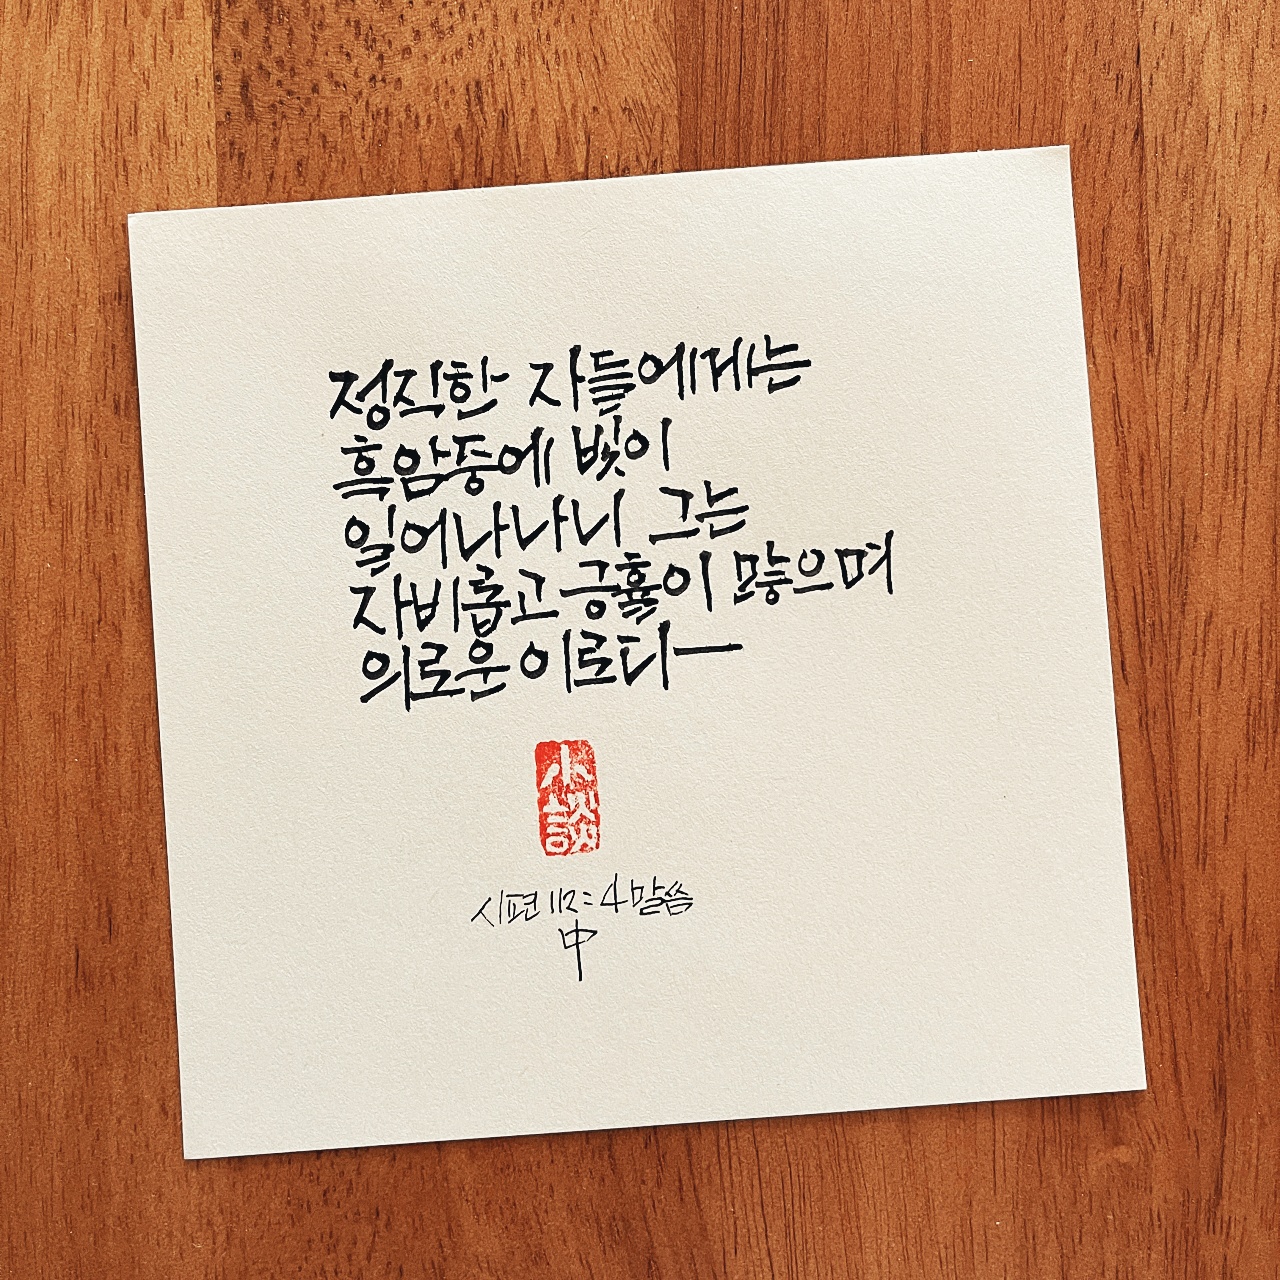 정직한 자들에게는
흑암중에 빛이
일어나나니 그는
자비롭고 긍휼이 많으며
의로운 이로다
小談
시편 112:4 말씀
中